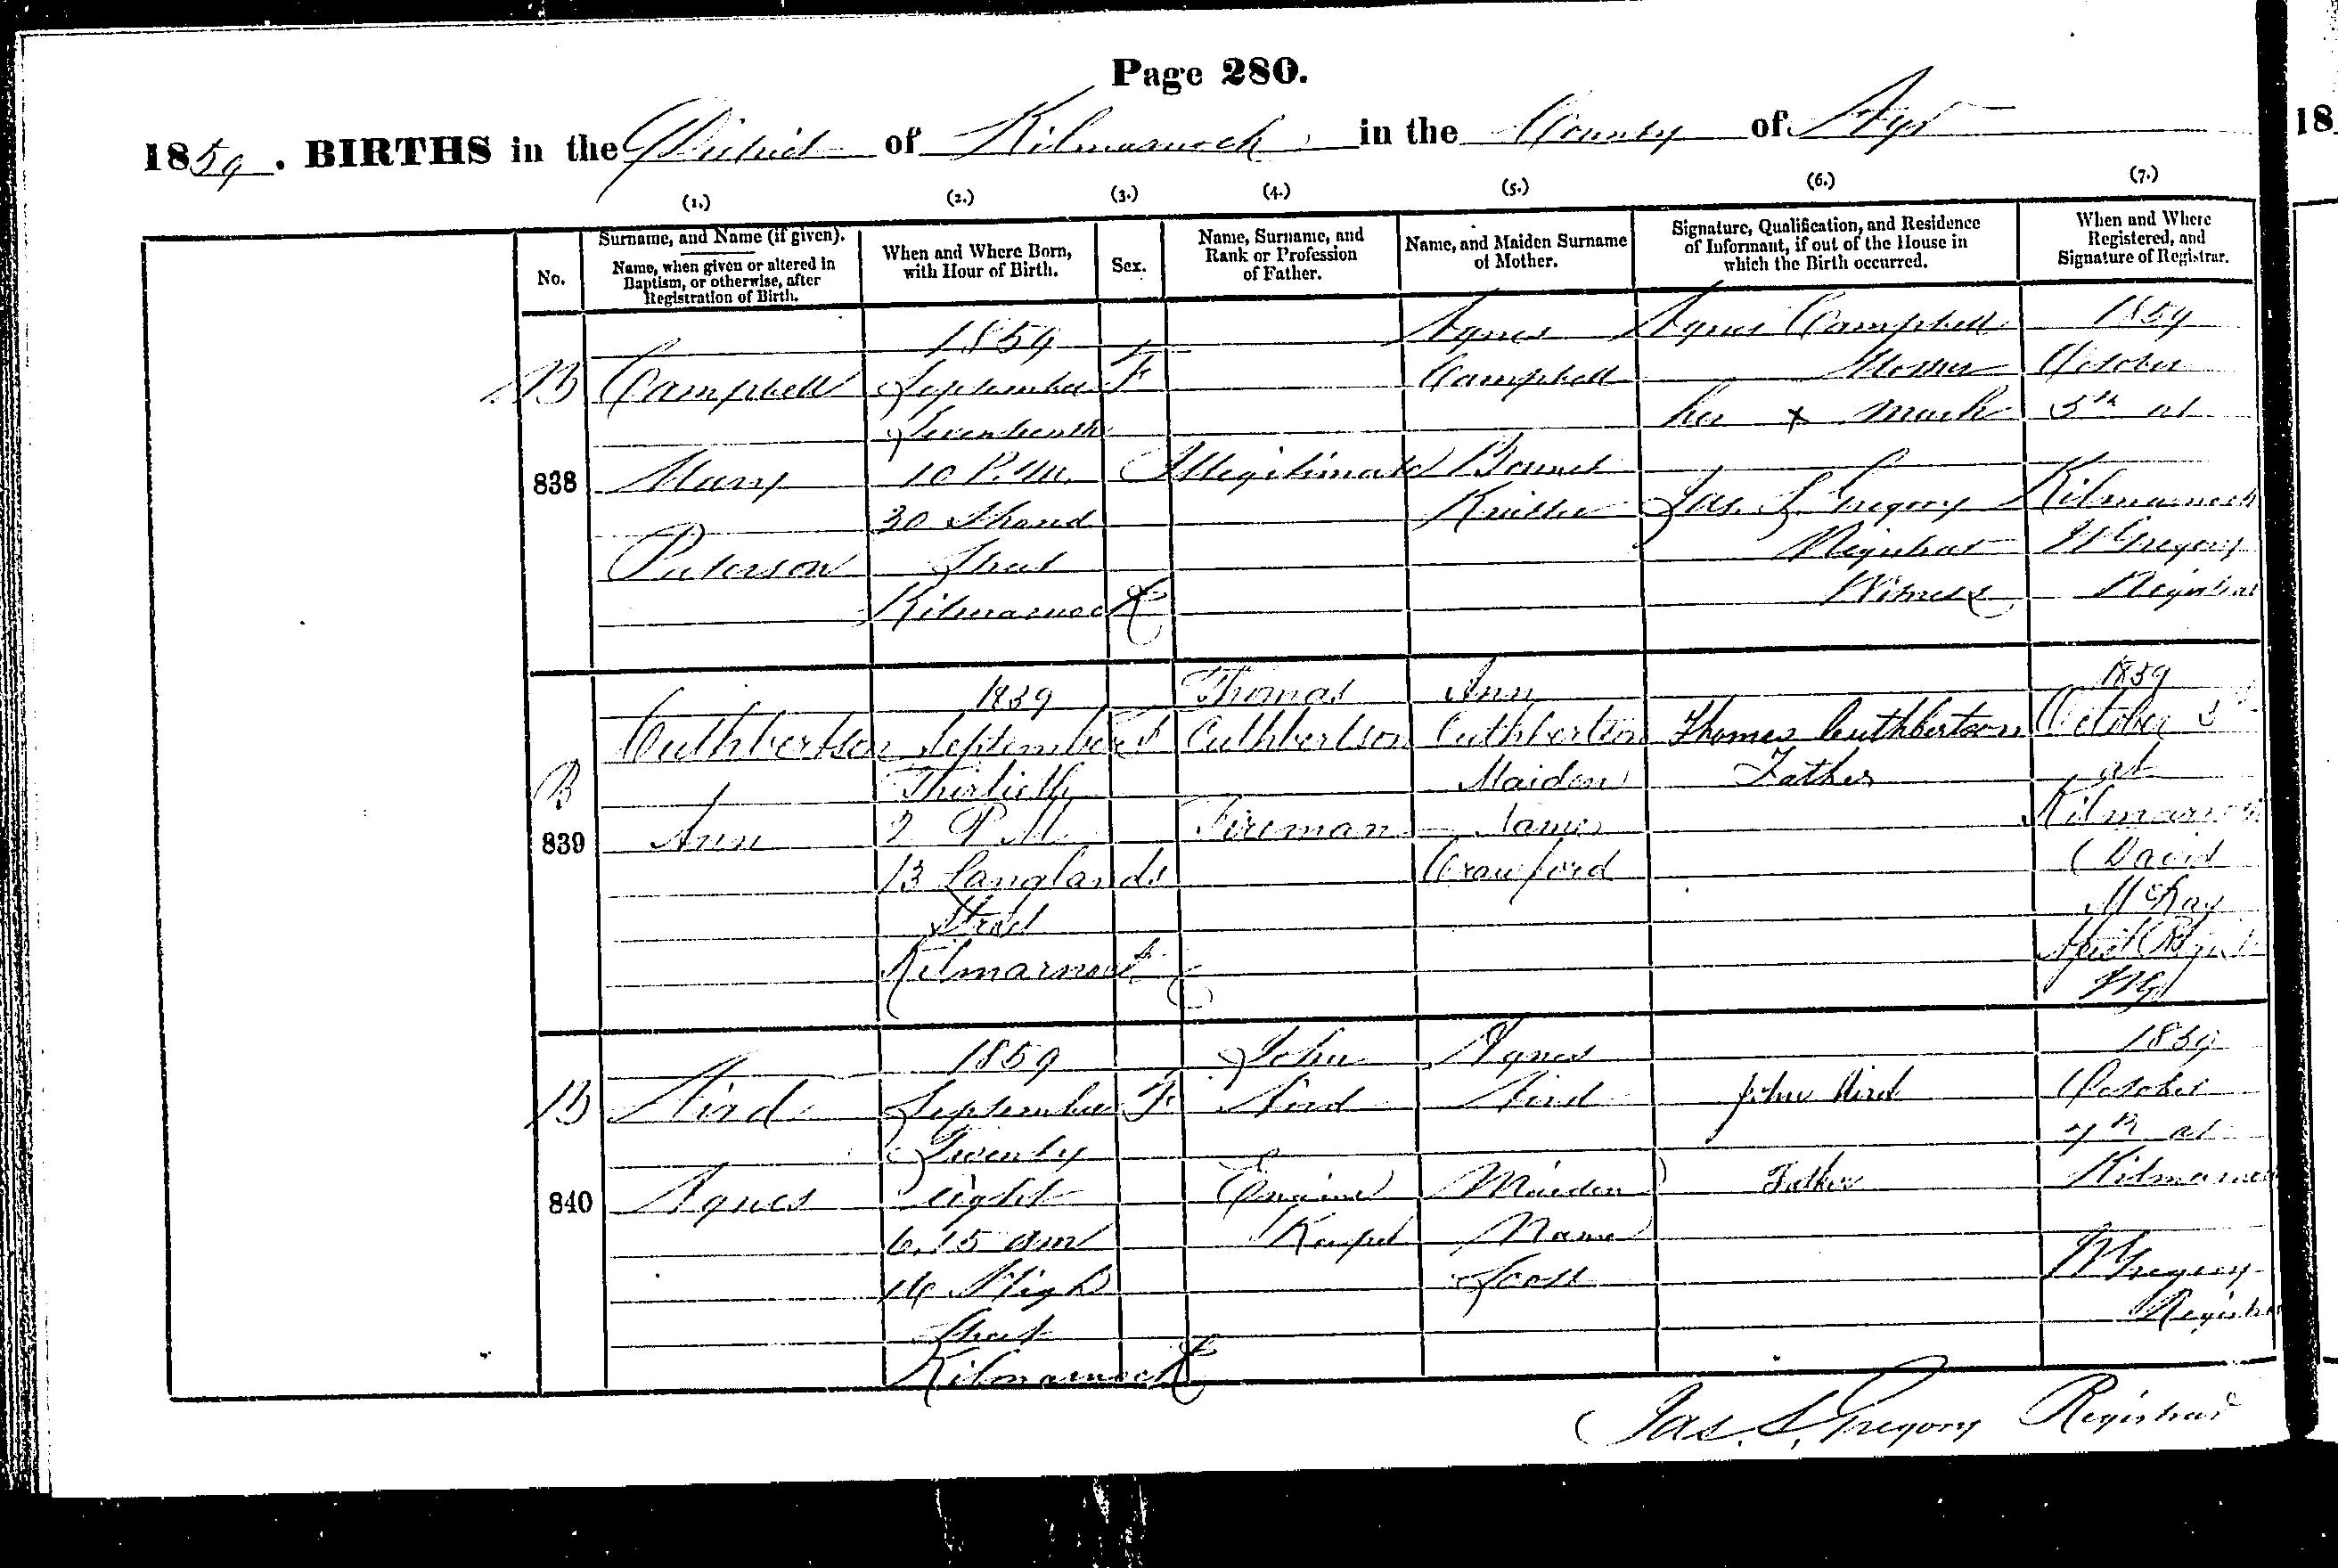 Page 280.
1859. BIRTHS in the District of Kilmarnock in the County of Ayr
18
(1.) (2.) (3.) (4.) (5.) (6.) (7.)
No.
Surname, and Name (if given).
Name, when given or altered in
Baptism, or otherwise, after
Registration of Birth.
When and Where Born,
with Hour of Birth.
Sex.
Name, Surname, and
Rank or Profession
of Father.
Name, and Maiden Surname
of Mother.
Signature, Qualification, and Residence
of Informant, if out of the House in
which the Birth occurred.
When and Where
Registered, and
Signature of Registrar.
B
838
Campbell
Mary
Paterson
1859
September
Seventeenth
10 P.M.
30 Strand
Street
Kilmarnock
F
Illegitimate
Agnes
Campbell
Bonnet
Knitter
Agnes Campbell
Mother
her x mark
Jas. S. Gregory
Registrar
Witness
1859
October
5th at
Kilmarnock
Gregory
Registrar
B
839
Cuthbertson
Ann
1859
September
Thirtieth
2 P.M.
13 Langlands
Street
Kilmarnock
F
Thomas
Cuthbertson
Fireman
Ann
Cuthbertson
Maiden
Name
Crawford
Thomas Cuthbertson
Father
1859
October 5
at
Kilmarnock
David
McKay
B
840
Aird
Agnes
1859
September
Twenty
eight
6.15 am
14 High
Street
Kilmarnock
F
John
Aird
Engine
Keeper
Agnes
Aird
Maiden
Name
Scott
John Aird
Father
1859
October
7th at
Kilmarnock
Gregory
Registrar
Jas. S. Gregory Registrar